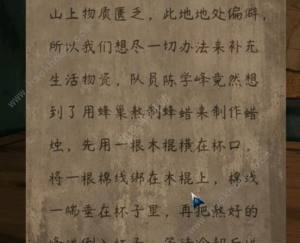 山上物质匮乏，此地地处偏僻，
所以我们想尽一切办法来补充
生活物资，队员陈学峰竟然想
到了用蜂巢熬制蜂蜡来制作蜡
烛，先用一根木棍横在杯口，
将一根棉线绑在木棍上，棉线
一端垂在杯子里，再把熬好的